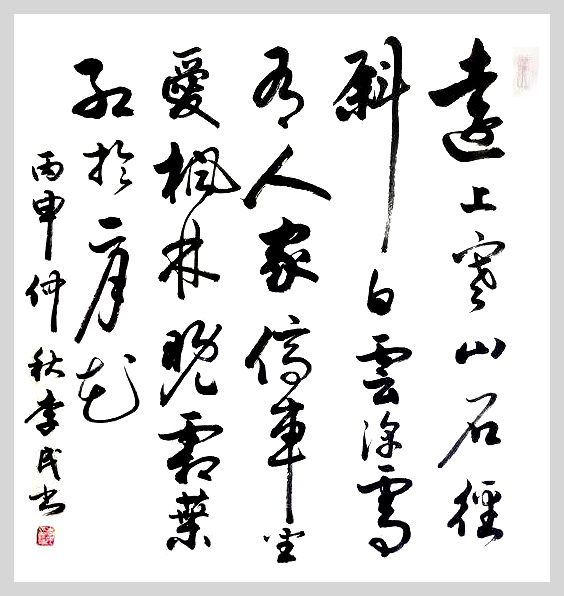 遠上寒山石徑
斜白雲深處
有人家停車坐
愛楓林晚霜葉
紅於二月花
丙申仲秋李民书